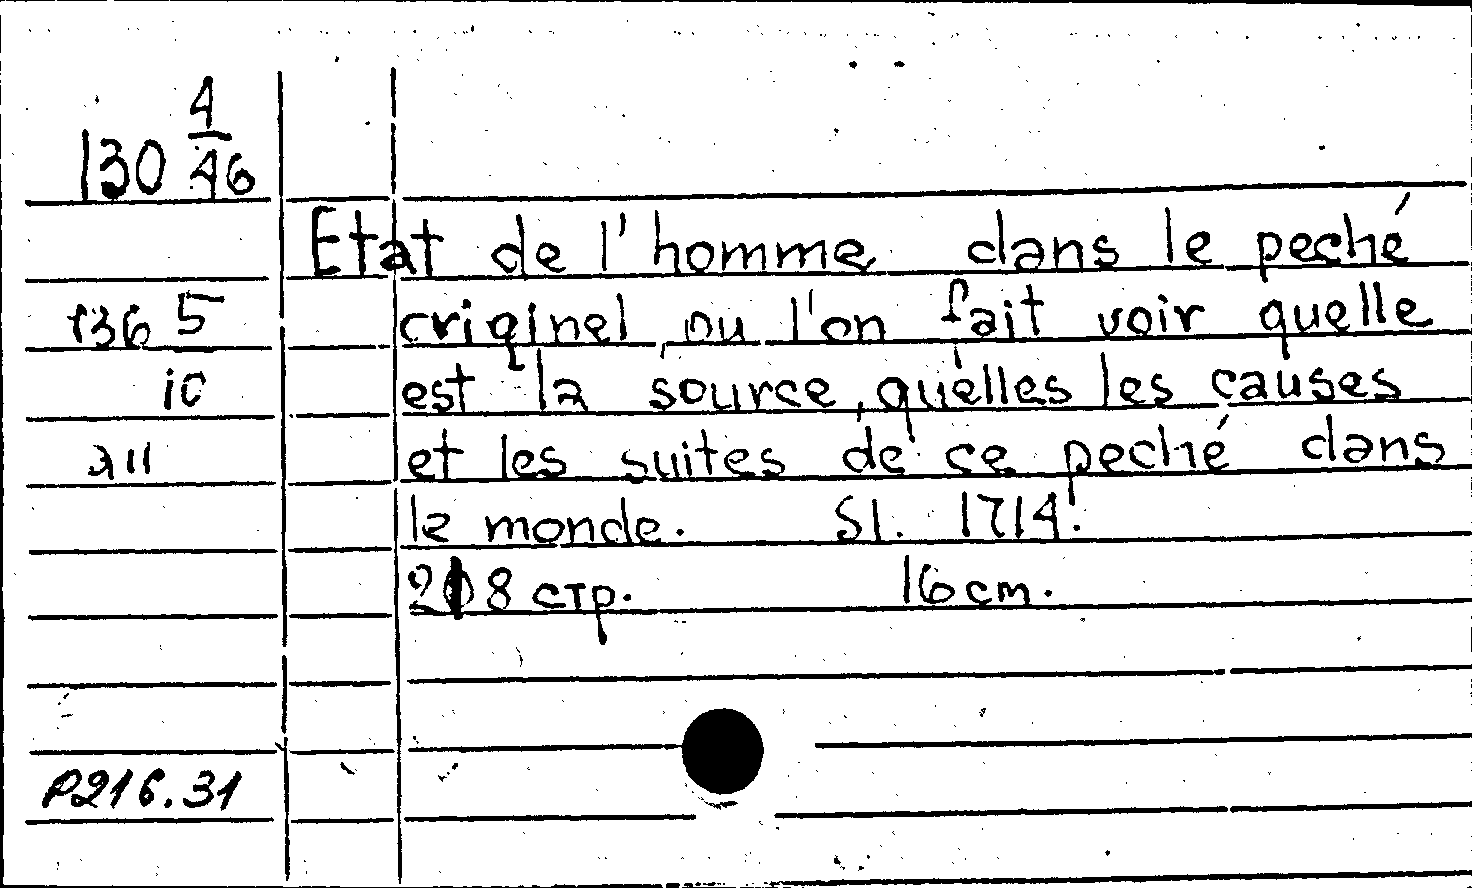 130 4/46
Etat de l'homme dans le peché
136 5 criginel ou l'on fait voir quelle
10 est la source, quelles les causes
211 et les suites de ce peché dans
le monde. Sl. 1714.
218 стр. 16 cm.
P216.31